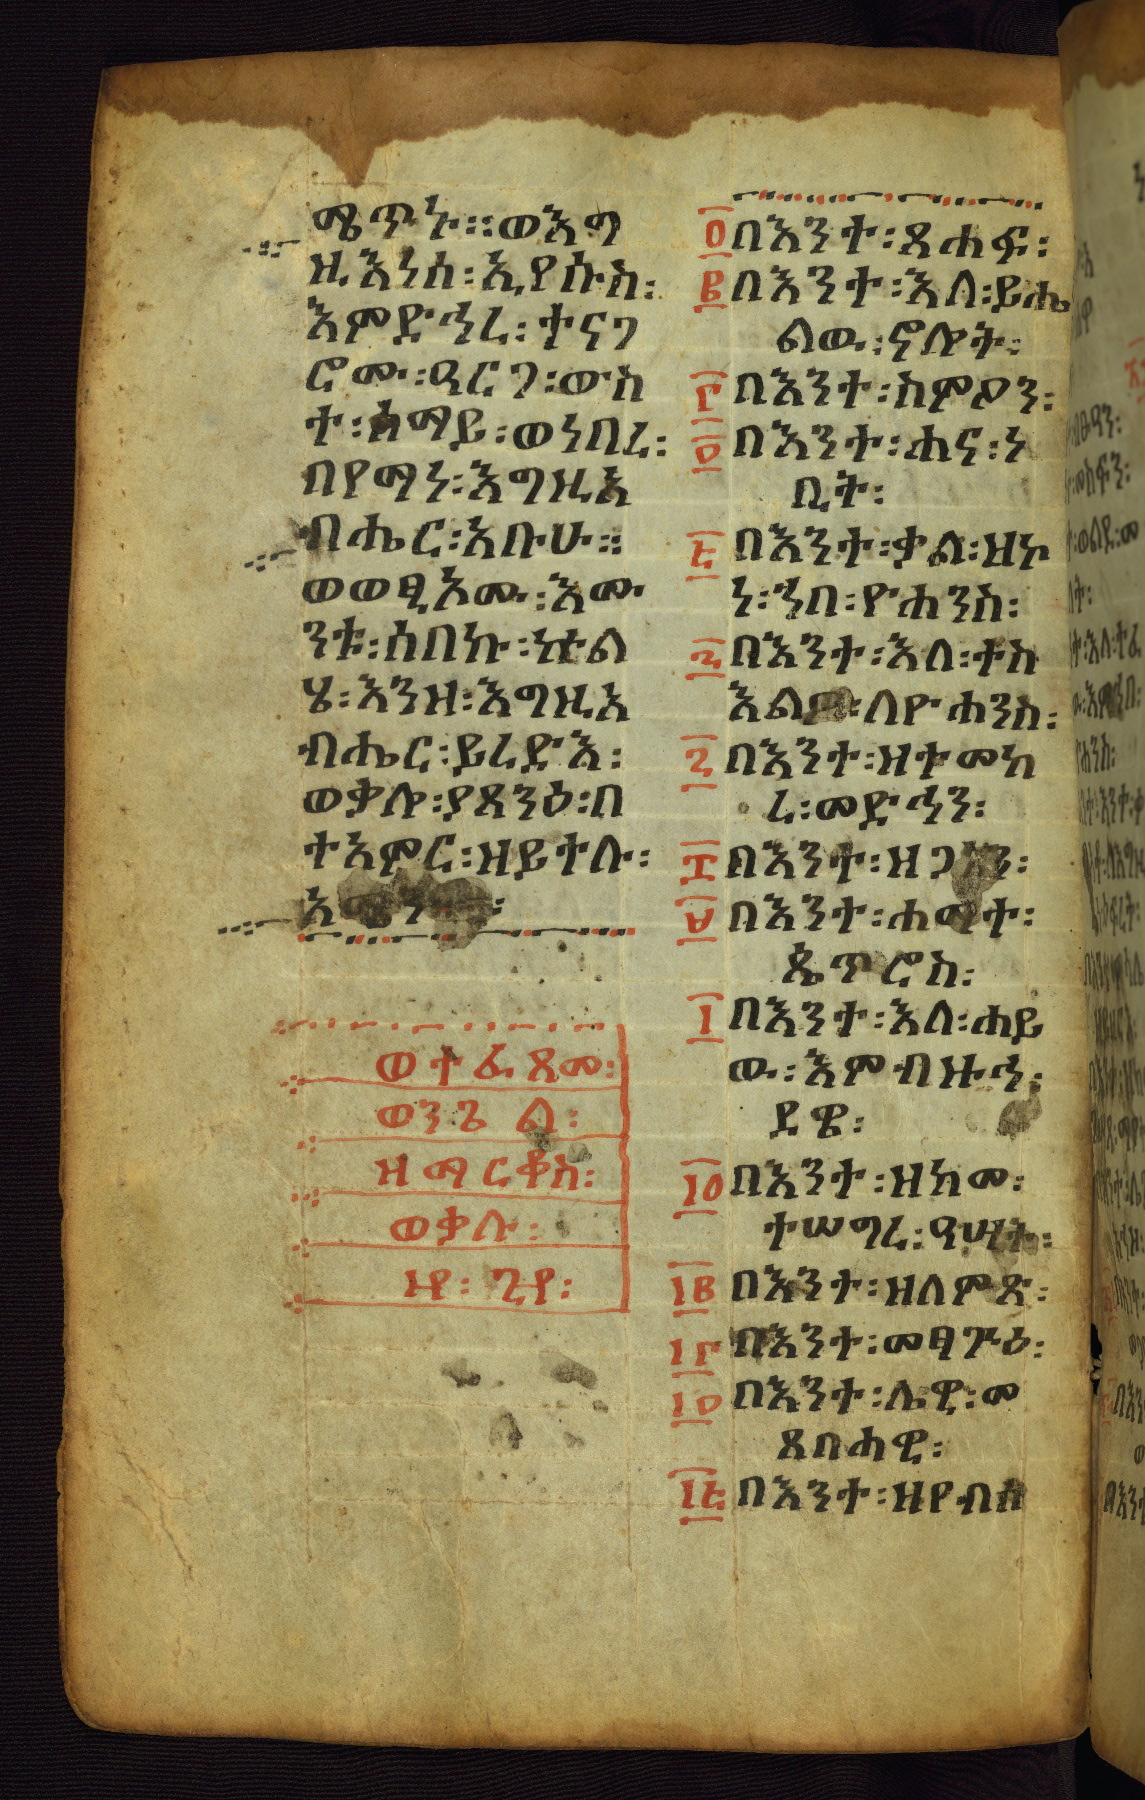 ሜጥኑ፡፡ወእግ
ዚእነሰ፡ኢየሱስ፡
እምድኅረ፡ተናገ
ሮሙ፡ዓርገ፡ውስ
ተ፡ሰማይ፡ወነበረ፡
በየማነ፡እግዚአ
ብሔር፡አቡሁ፡፡
ወወፂኦሙ፡እሙ
ንቱ፡ሰበኩ፡ኵል
ሄ፡እንዘ፡እግዚአ
ብሔር፡ይረድአ፡
ወቃሎ፡ያጸንዕ፡በ
ተአምር፡ዘይተሉ፡
አሜን፡
ወተፈጸመ፡
ወንጌል፡
ዘማርቆስ፡
ወቃሉ፡
፲፻፡ ፯፻፡
፩ በእንተ፡ጸሐፍ፡
፪ በእንተ፡እለ፡ይሔ
ልዉ፡ኖሎት፡
፫ በእንተ፡ስምዖን፡
፬ በእንተ፡ሐና፡ነ
ቢት፡
፭ በእንተ፡ቃል፡ዘኮ
ነ፡ኀበ፡ዮሐንስ፡
፮ በእንተ፡እለ፡ተስ
እልዎ፡ለዮሐንስ፡
፯ በእንተ፡ዘተመከ
ረ፡መድኅን፡
፰ በእንተ፡ዘጋኔን፡
፱ በእንተ፡ሐማተ፡
ጴጥሮስ፡
፲ በእንተ፡እለ፡ሐይ
ዉ፡እምብዙኅ፡
ደዌ፡
፲፩ በእንተ፡ዘከመ፡
ተሠግረ፡ዓሣት፡
፲፪ በእንተ፡ዘለምጽ፡
፲፫ በእንተ፡መፃጕዕ፡
፲፬ በእንተ፡ሌዊ፡መ
ጸብሓዊ፡
፲፭ በእንተ፡ዘየብሰ